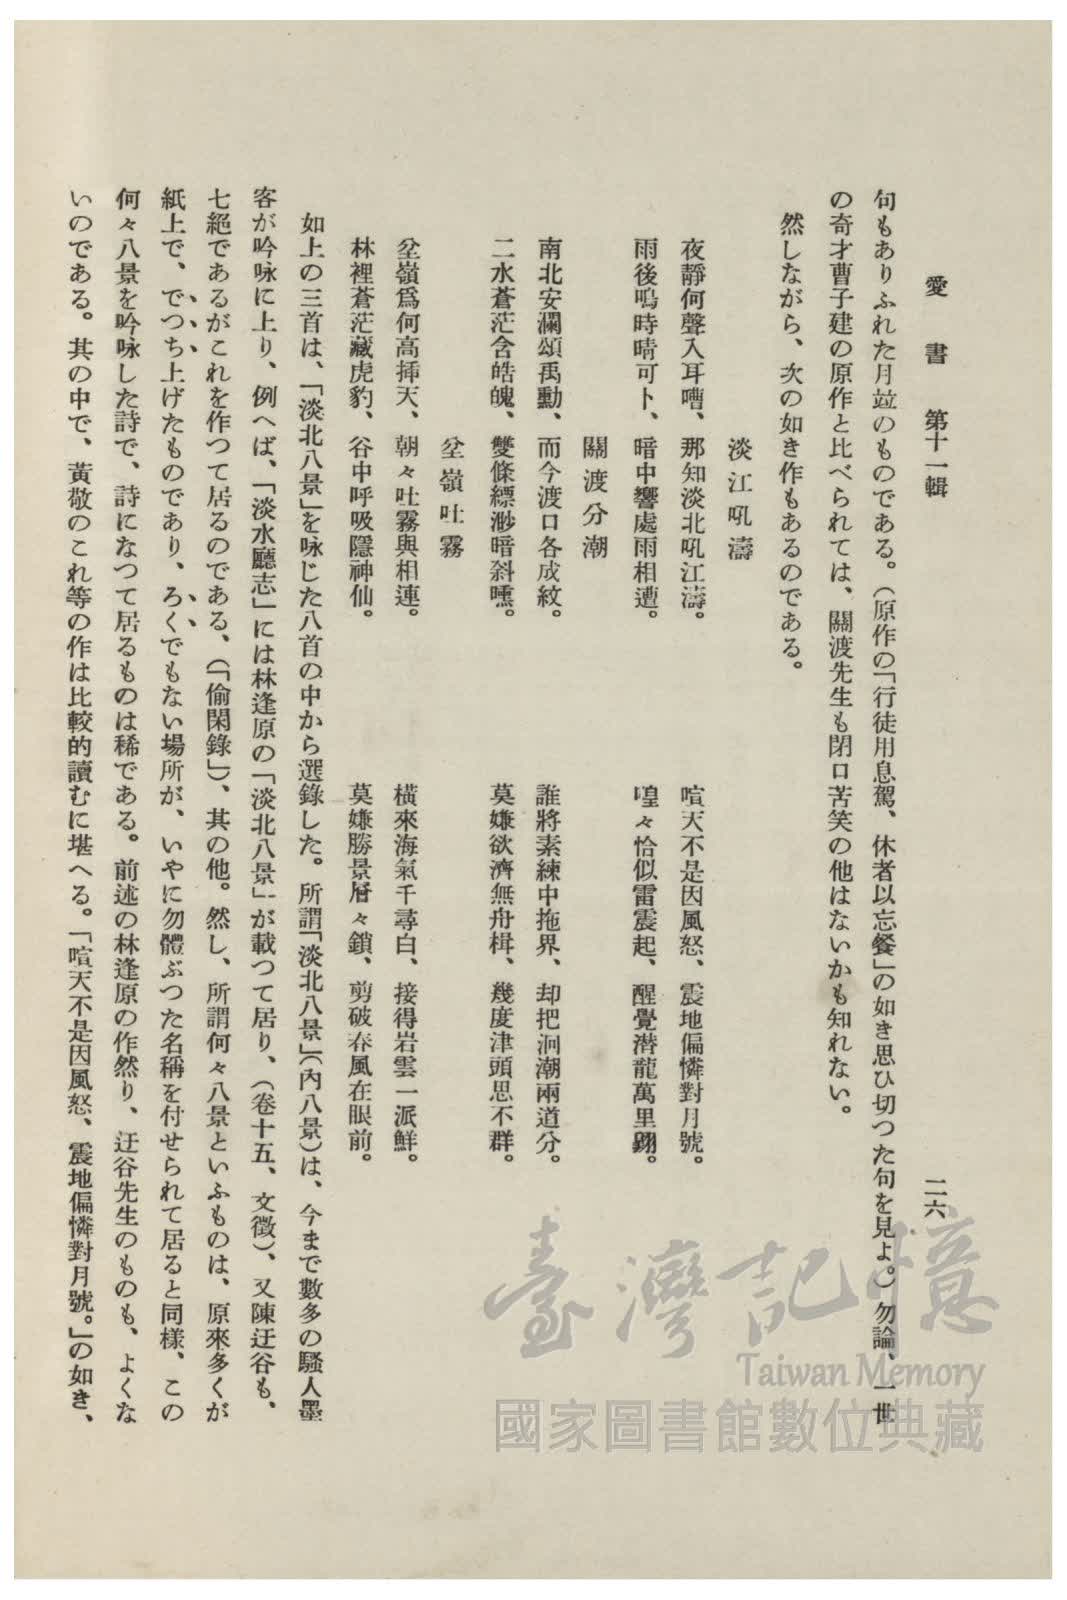 愛書 第十一輯
二六
句もありふれた月竝のものである。（原作の「行徒用息駕、休者以忘餐」の如き思ひ切つた句を見よ。）勿論、一世
の奇才曹子建の原作と比べられては、關渡先生も閉口苦笑の他はないかも知れない。
然しながら、次の如き作もあるのである。
淡江吼濤
夜靜何聲入耳嘈、那知淡北吼江濤。 喧天不是因風怒、震地偏憐對月號。
雨後鳴時晴可卜、暗中響處雨相遭。 喤々恰似雷震起、醒覺潛龍萬里翺。
關渡分潮
南北安瀾頌禹勳、而今渡口各成紋。 誰將素練中拖界、却把洄潮兩道分。
二水蒼茫含皓魄、雙條縹渺暗斜曛。 莫嫌欲濟無舟楫、幾度津頭思不群。
坌嶺吐霧
坌嶺爲何高揷天、朝々吐霧與相連。 橫來海氣千尋白、接得岩雲一派鮮。
林裡蒼茫藏虎豹、谷中呼吸隱神仙。 莫嫌勝景層々鎖、剪破春風在眼前。
如上の三首は、「淡北八景」を咏じた八首の中から選錄した。所謂「淡北八景」（內八景）は、今まで數多の騷人墨
客が吟咏に上り、例へば、「淡水廳志」には林逢原の「淡北八景」が載つて居り、（卷十五、文徵）、又陳迂谷も、
七絕であるがこれを作つて居るのである、（「偷閑錄」）、其の他。然し、所謂何々八景といふものは、原來多くが
紙上で、でつち上げたものであり、ろくでもない場所が、いやに勿體ぶつた名稱を付せられて居ると同樣、この
何々八景を吟咏した詩で、詩になつて居るものは稀である。前述の林逢原の作然り、迂谷先生のものも、よくな
いのである。其の中で、黃敬のこれ等の作は比較的讀むに堪へる。「喧天不是因風怒、震地偏憐對月號。」の如き、
臺灣記憶
Taiwan Memory
國家圖書館數位典藏